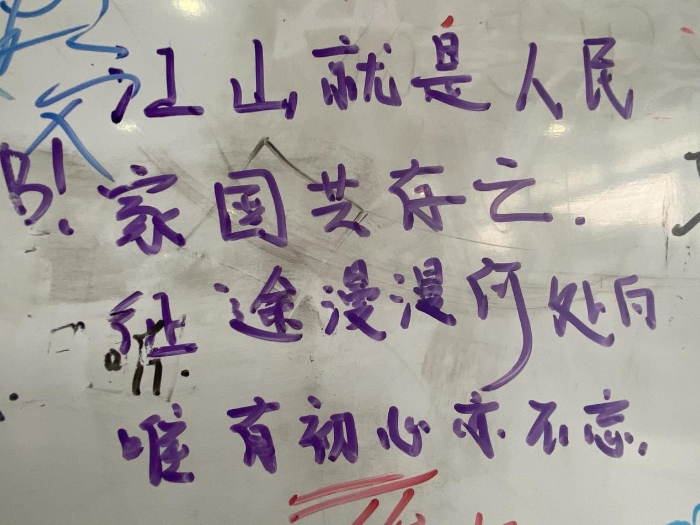 江山就是人民
家国共存亡.
征途漫漫何处向
唯有初心亦不忘.
B!